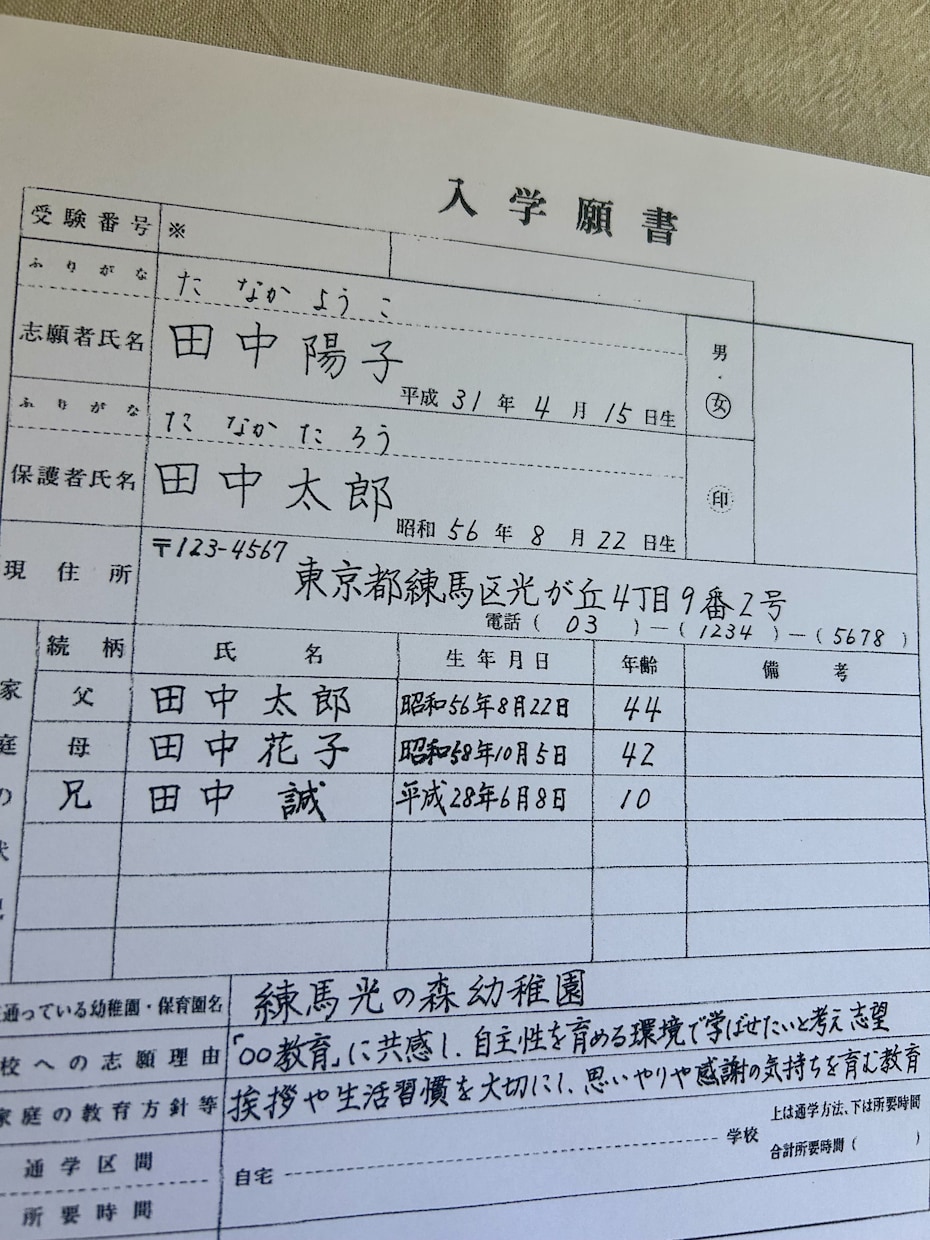 入学願書
受験番号 ※
ふりがな たなかようこ
志願者氏名 田中陽子 男・女
平成31年4月15日生
ふりがな たなかたろう
保護者氏名 田中太郎 印
昭和56年8月22日生
現住所 〒123-4567
東京都練馬区光が丘4丁目9番2号
電話(03)―(1234)―(5678)
続柄 氏名 生年月日 年齢 備考
父 田中太郎 昭和56年8月22日 44
母 田中花子 昭和58年10月5日 42
兄 田中誠 平成28年6月8日 10
家庭の状
通っている幼稚園・保育園名 練馬光の森幼稚園
校への志願理由 「○○教育」に共感し、自主性を育める環境で学ばせたいと考え志望
家庭の教育方針等 挨拶や生活習慣を大切にし、思いやりや感謝の気持ちを育む教育
通学区間 自宅 学校 上は通学方法、下は所要時間
所要時間 合計所要時間( )